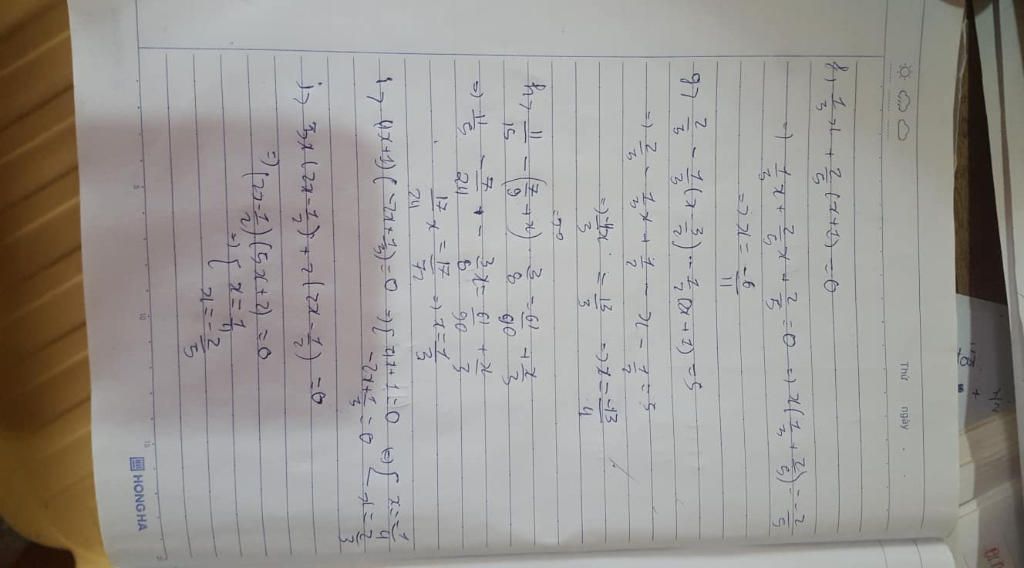 Thứ ngày
f, 1/3 x + 2/5 (x+1) = 0
=> 1/3 x + 2/5 x + 2/5 = 0 => x(1/3 + 2/5) = -2/5
=> x = -6/11
g, 2/3 - 1/3 (x - 3/2) - 1/2 (2x+1) = 5
=> 2/3 - 1/3 x + 1/2 - x - 1/2 = 5
=> -4x/3 = 13/3 => x = -13/4
h, 11/15 - (7/9 + x) 3/8 = 61/90 + x/3
=> 11/15 - 7/24 - 3/8 x = 61/90 + x/3
17/24 x = 17/72 => x = 1/3
(4x+1)(-2x+1/3) = 0 => [4x+1=0 <=> [x = -1/4
-2x+1/3 = 0
3x(2x - 1/2) + 2(2x - 1/2) = 0
=> (2x - 1/2)(5x+2) = 0
=> { x = 1/4
x = -2/5
HONG HA